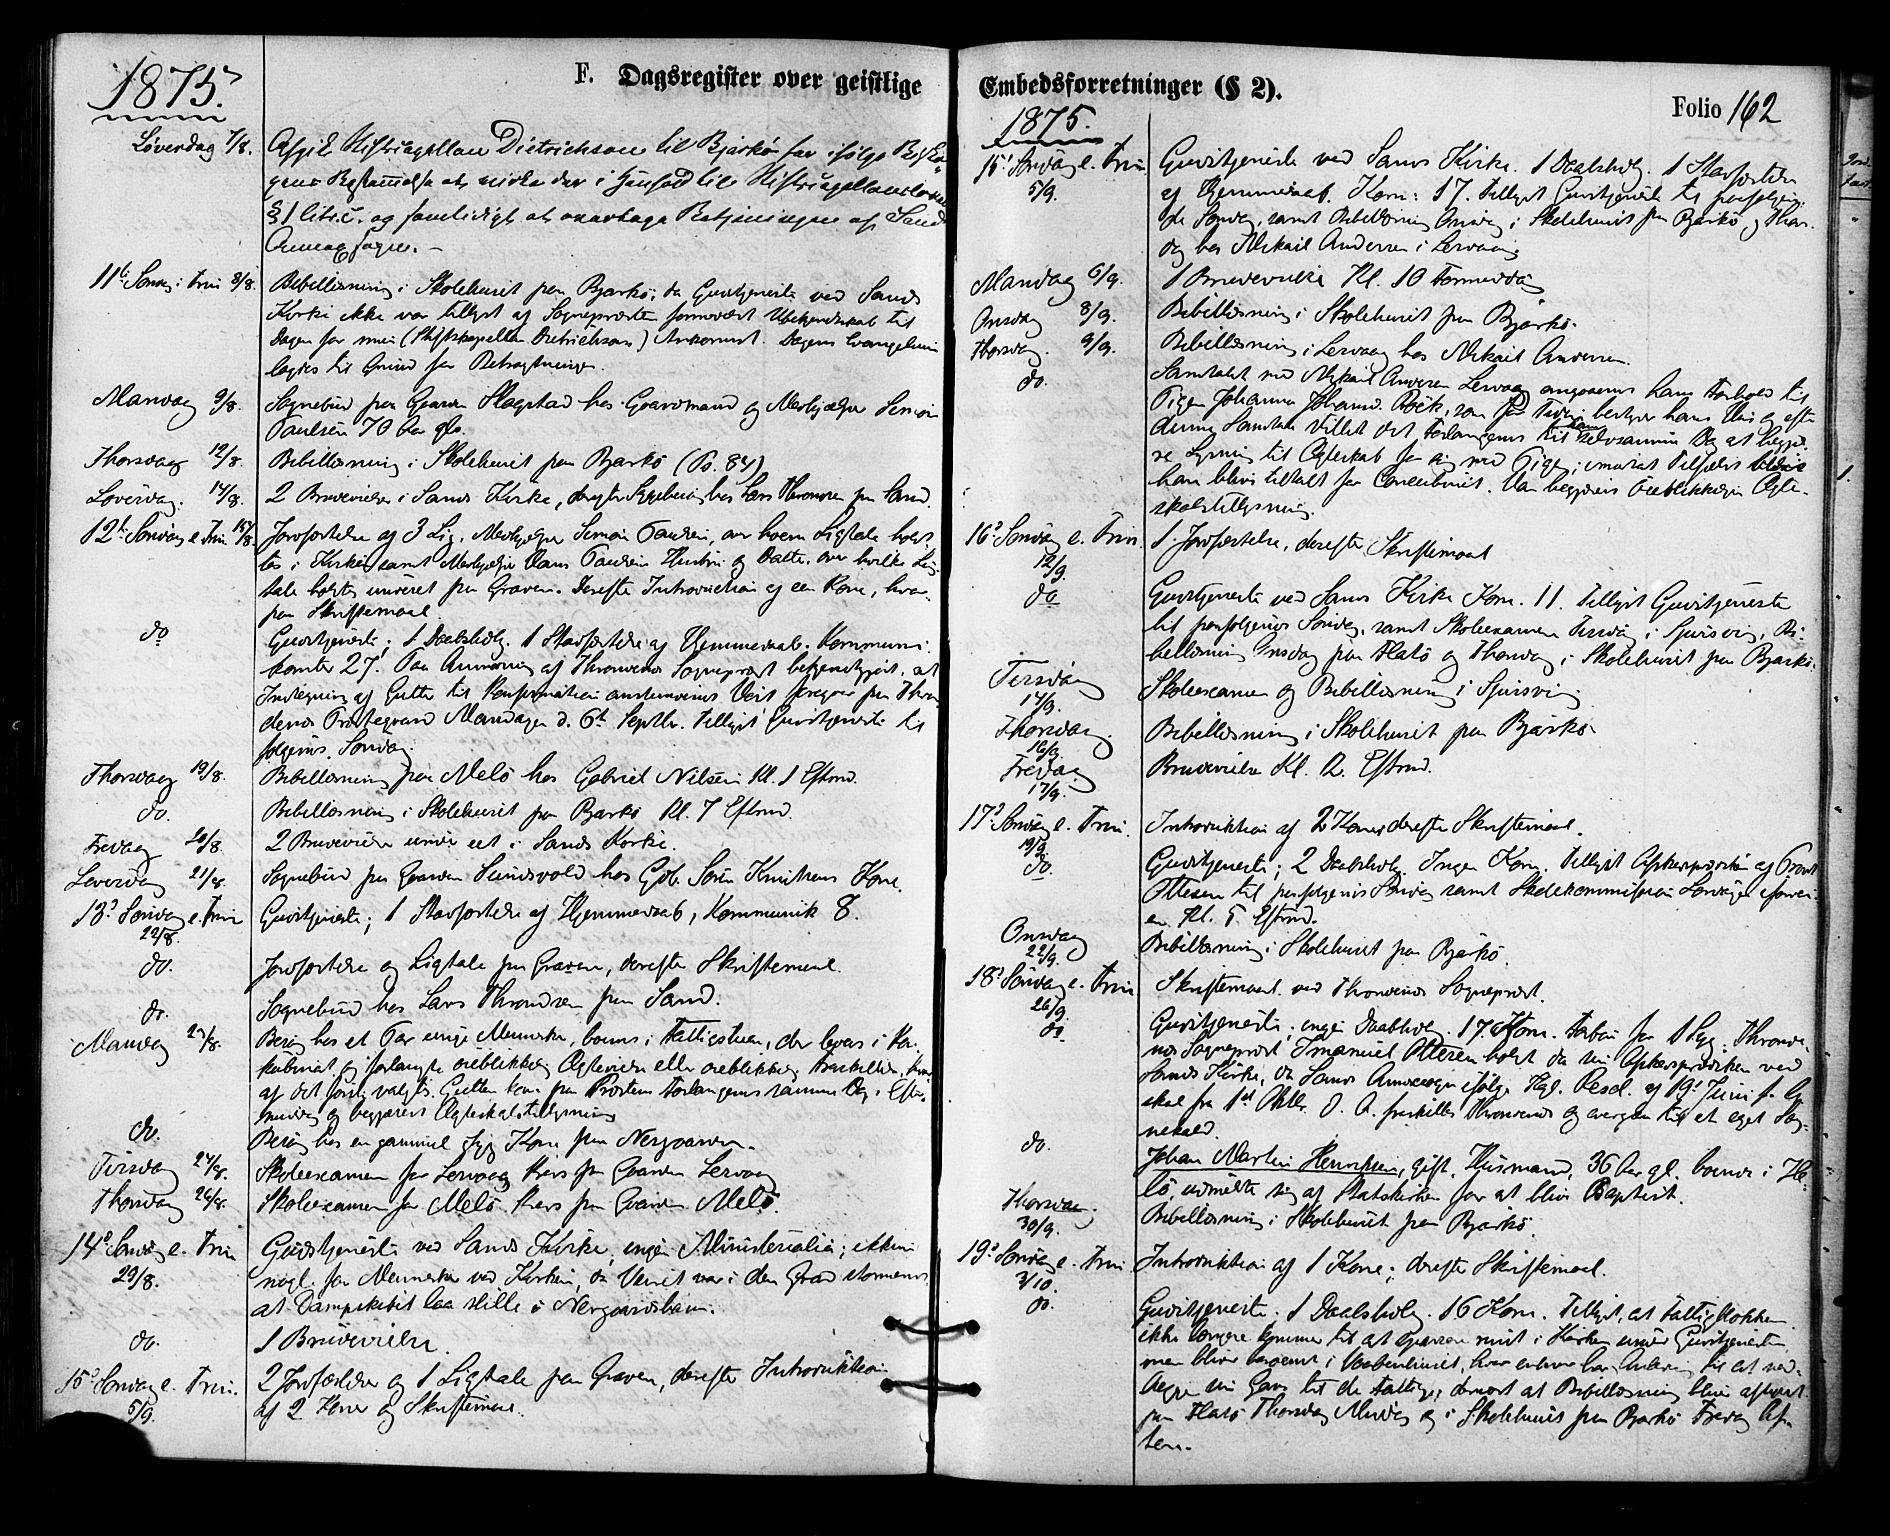 F. Dagsregister over geistlige
1875.
Løverdag 7/8. Afgik Stiftscapellan Dietrichson til Bjarkø for ifølge
§ 1 litr. c. og samtidigt at overtage Betjeningen af Sands
Annexsogn. -
11te Sønd. e. Trin 8/8. Bibellæsning i Skolehuset paa Bjarkø, da Gudstjeneste ved Sands
Kirke ikke var tillyst af Sognepræsten formedelst Ubekjendtskab til
Dagen for min (Stiftskapellan Dietrichsons) Ankomst. Dagens Evangelium
lagdes til Grund for Betragtningen.
Mandag 9/8. Sognebud paa Gaarden Slagstad hos Gaardmand og Medhjælper Simon
Paulsen 70 Aar gl.
Thorsdag 12/8. Bibellæsning i Skolehuset paa Bjarkø (Ps. 84)
Løverdag. 14/8. 2 Brudevielser i Sands Kirke, derefter Sygebesøg hos Lars Thronsen paa Sand.
12te Søndag e. Trin 15/8. Jordfæstelse af 3 Lig, Medhjælper Simon Paulsen, over hvem Ligtale hold-
tes i Kirken, samt Medhjælper Hans Paulsens Hustru og Datter, over hvilke Lig-
tale holdtes udenfor paa Graven. Derefter Introduction af en Kone, hver-
paa Skriftemaal
do Gudstjeneste; 1 Daabsbarn. 1 Stadfæstelse af Hjemmedaab. Kommuni-
kanter 27. Paa Anmodning af Throndenes Sognepræst bekjendtgjort, at
Indtegning af Gutter til Konfirmation anstendende Høst foregaar paa Thron-
denes Præstegaard Mandagen d. 6te Septbr. Tillyst Gudstjeneste til
følgende Søndag.
Thorsdag 19/8. Bibellæsning paa Melø hos Gabriel Nilsen Kl. 1 Eftmd.
do. Bibellæsning i Skolehuset paa Bjarkø Kl. 7 Eftmd.
Fredag 20/8. 2 Brudevielser under eet i Sands Kirke.
Løverdag 21/8. Sognebud paa Gaarden Sundsvold hos Gdb. Sørn Knutsens Kone.
13de Søndag e. Trin
22/8. Gudstjeneste; 1 Stadfæstelse af Hjemmedaab, Kommunik 8.
do. Jordfæstelse og Ligtale paa Graven, derefter Skriftemaal.
do. Sognebud hos Lars Throndsen paa Sand.
Mandag 23/8. Besøg hos et Par unge Mennesker, boende i Fattigstuen, der levede i Kon-
kubinat, og forlangte øieblikkelig Ægtevielse eller øieblikkelig Fraskillelse, hvor-
af det første valgtes. Gutten kom paa Præstens Forlangende samme Dag i Efter-
middag og begjærede Ægteskabstillysning
do. Besøg hos en gammel syg Kone paa Nergaarden.
Tirsdag 24/8. Skoleexamen for Lervaag Kreds paa Gaarden Lervaag
Thorsdag 26/8. Skoleexamen for Melø Kreds paa Gaarden Melø.
14de Søndag e. Trin
29/8. Gudstjeneste ved Sands Kirke, ingen Ministerialia; ikkun
nogle faa Mennesker ved Kirken, da Veiret var i den Grad stormende
at Dampskibet laa stille i Nergaardshavn.
do. 1 Brudevielse.
15de Søndag e. Trin.
5/9. 2 Jordfæstelser og 1 Ligtale paa Graven, derefter Introduktion
af 2 Koner og Skriftemaal.
Embedsforretninger (§ 2).
Folio 162
1875.
15de Søndag e. Trin.
5/9. Gudstjeneste ved Sands Kirke. 1 Daabsbarn. 1 Stadfæstelse
af Hjemmedaab. Kom: 17. Tillyst Gudstjeneste til paafølgen-
de Søndag, samt Bibellæsning Onsdag i Skolehuset paa Bjarkø og Thors-
dag hos Mikael Andersen i Lervaag.
Mandag 6/9. 1 Brudevielse Kl. 10 Formiddag
Onsdag 8/9. Bibellæsning i Skolehuset paa Bjarkø.
Thorsdag. 9/9. Bibellæsning i Lervaag hos Mikael Andersen.
do. Samtalet med Mikael Andersen Lervaag angaaende hans Forhold til
Pigen Johanna Johansd. Røek, som bestyrer hans Huus og efter
denne Samtale villet det forlangende til ham selvsamme Dag at begjæ-
re Lysning til Ægteskab for sig med Pigen; i modsat Tilfælde vilde
han blive tiltalt for Concubinat. Han begjærede øieblikkelig Ægte-
skabstillysning.
16de Søndag e. Trin.
12/9. 1 Jordfæstelse, derefter Skriftemaal
do Gudstjeneste ved Sands Kirke Kom. 11. Tillyst Gudstjeneste
til paafølgende Søndag, samt Skoleexamen Tirsdag i Grasvig, Bi-
bellæsning Onsdag paa Flatø og Thorsdag i Skolehuset paa Bjarkø.
Tirsdag
14/9. Skoleexamen og Bibellæsning i
Thorsdag.
16/9. Bibellæsning i Skolehuset paa Bjarkø.
Fredag
17/9. Brudevielse Kl. 2. Eftmd.
17de Søndag e. Trin.
19/9. Introduktion af 2 Koner derefter Skriftemaal.
do. Gudstjeneste; 2 Daabsbarn. Ingen Kom. Tillyst Afskedspræken af Provst
Ottesen til paafølgende Søndag samt Skolekommission Løverdag iforvei-
en Kl. 5 Eftmd.
Onsdag
22/9. Bibellæsning i Skolehuset paa Bjarkø.
18de Søndag e. Trin
26/9. Skriftemaal ved Throndenes Sognepræst.
do Gudstjeneste. ingen Daabsbarn. 17. Kom. Forbøn for 1 Syg. Thronde-
nes Sognepræst Imanuel Ottesen holdt da sin Afskedspræken ved
Sands Kirke, da Sands Annexsogn ifølge Kgl. Resol. af 19de Juni f. A.
skal fra 1ste Oktbr. d. A. fraskilles Throndenes og overgaa til et eget Sog-
nekald.
do. Johan Martin Henriksen, gift Husmand, 36 Aar gl. boende i
udmeldte sig af Statskirken for at blive Baptist.
Thorsdag.
30/9. Bibellæsning i Skolehuset paa Bjarkø.
19de Søndag e. Trin
3/10. Introduktion af 1 Kone; derefter Skriftemaal.
do. Gudstjeneste. 1 Daabsbarn. 16 Kom. Tillyst, at Fattigblokken
ikke længere kommer til at ombæres rundt i Kirken under Gudstjenesten,
men bliver i Vaabenhuset, hvor enhver har Anledning til at ned-
lægge sin Gave til de Fattige; dernæst at Bibellæsning bliver afholdt
paa Flatø Thorsdag Middag og i Skolehuset paa Bjarkø Fredag Af-
ten.